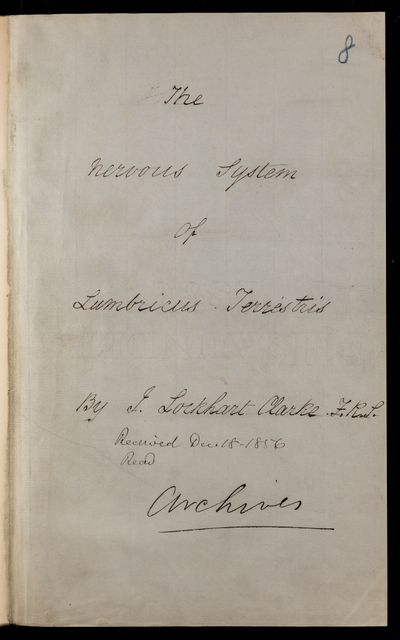 8
The
Nervous System
Of
Lumbricus Terrestris
By J. Lockhart Clarke. F.R.S.
Received Dec. 18 - 1856
Read
Archives